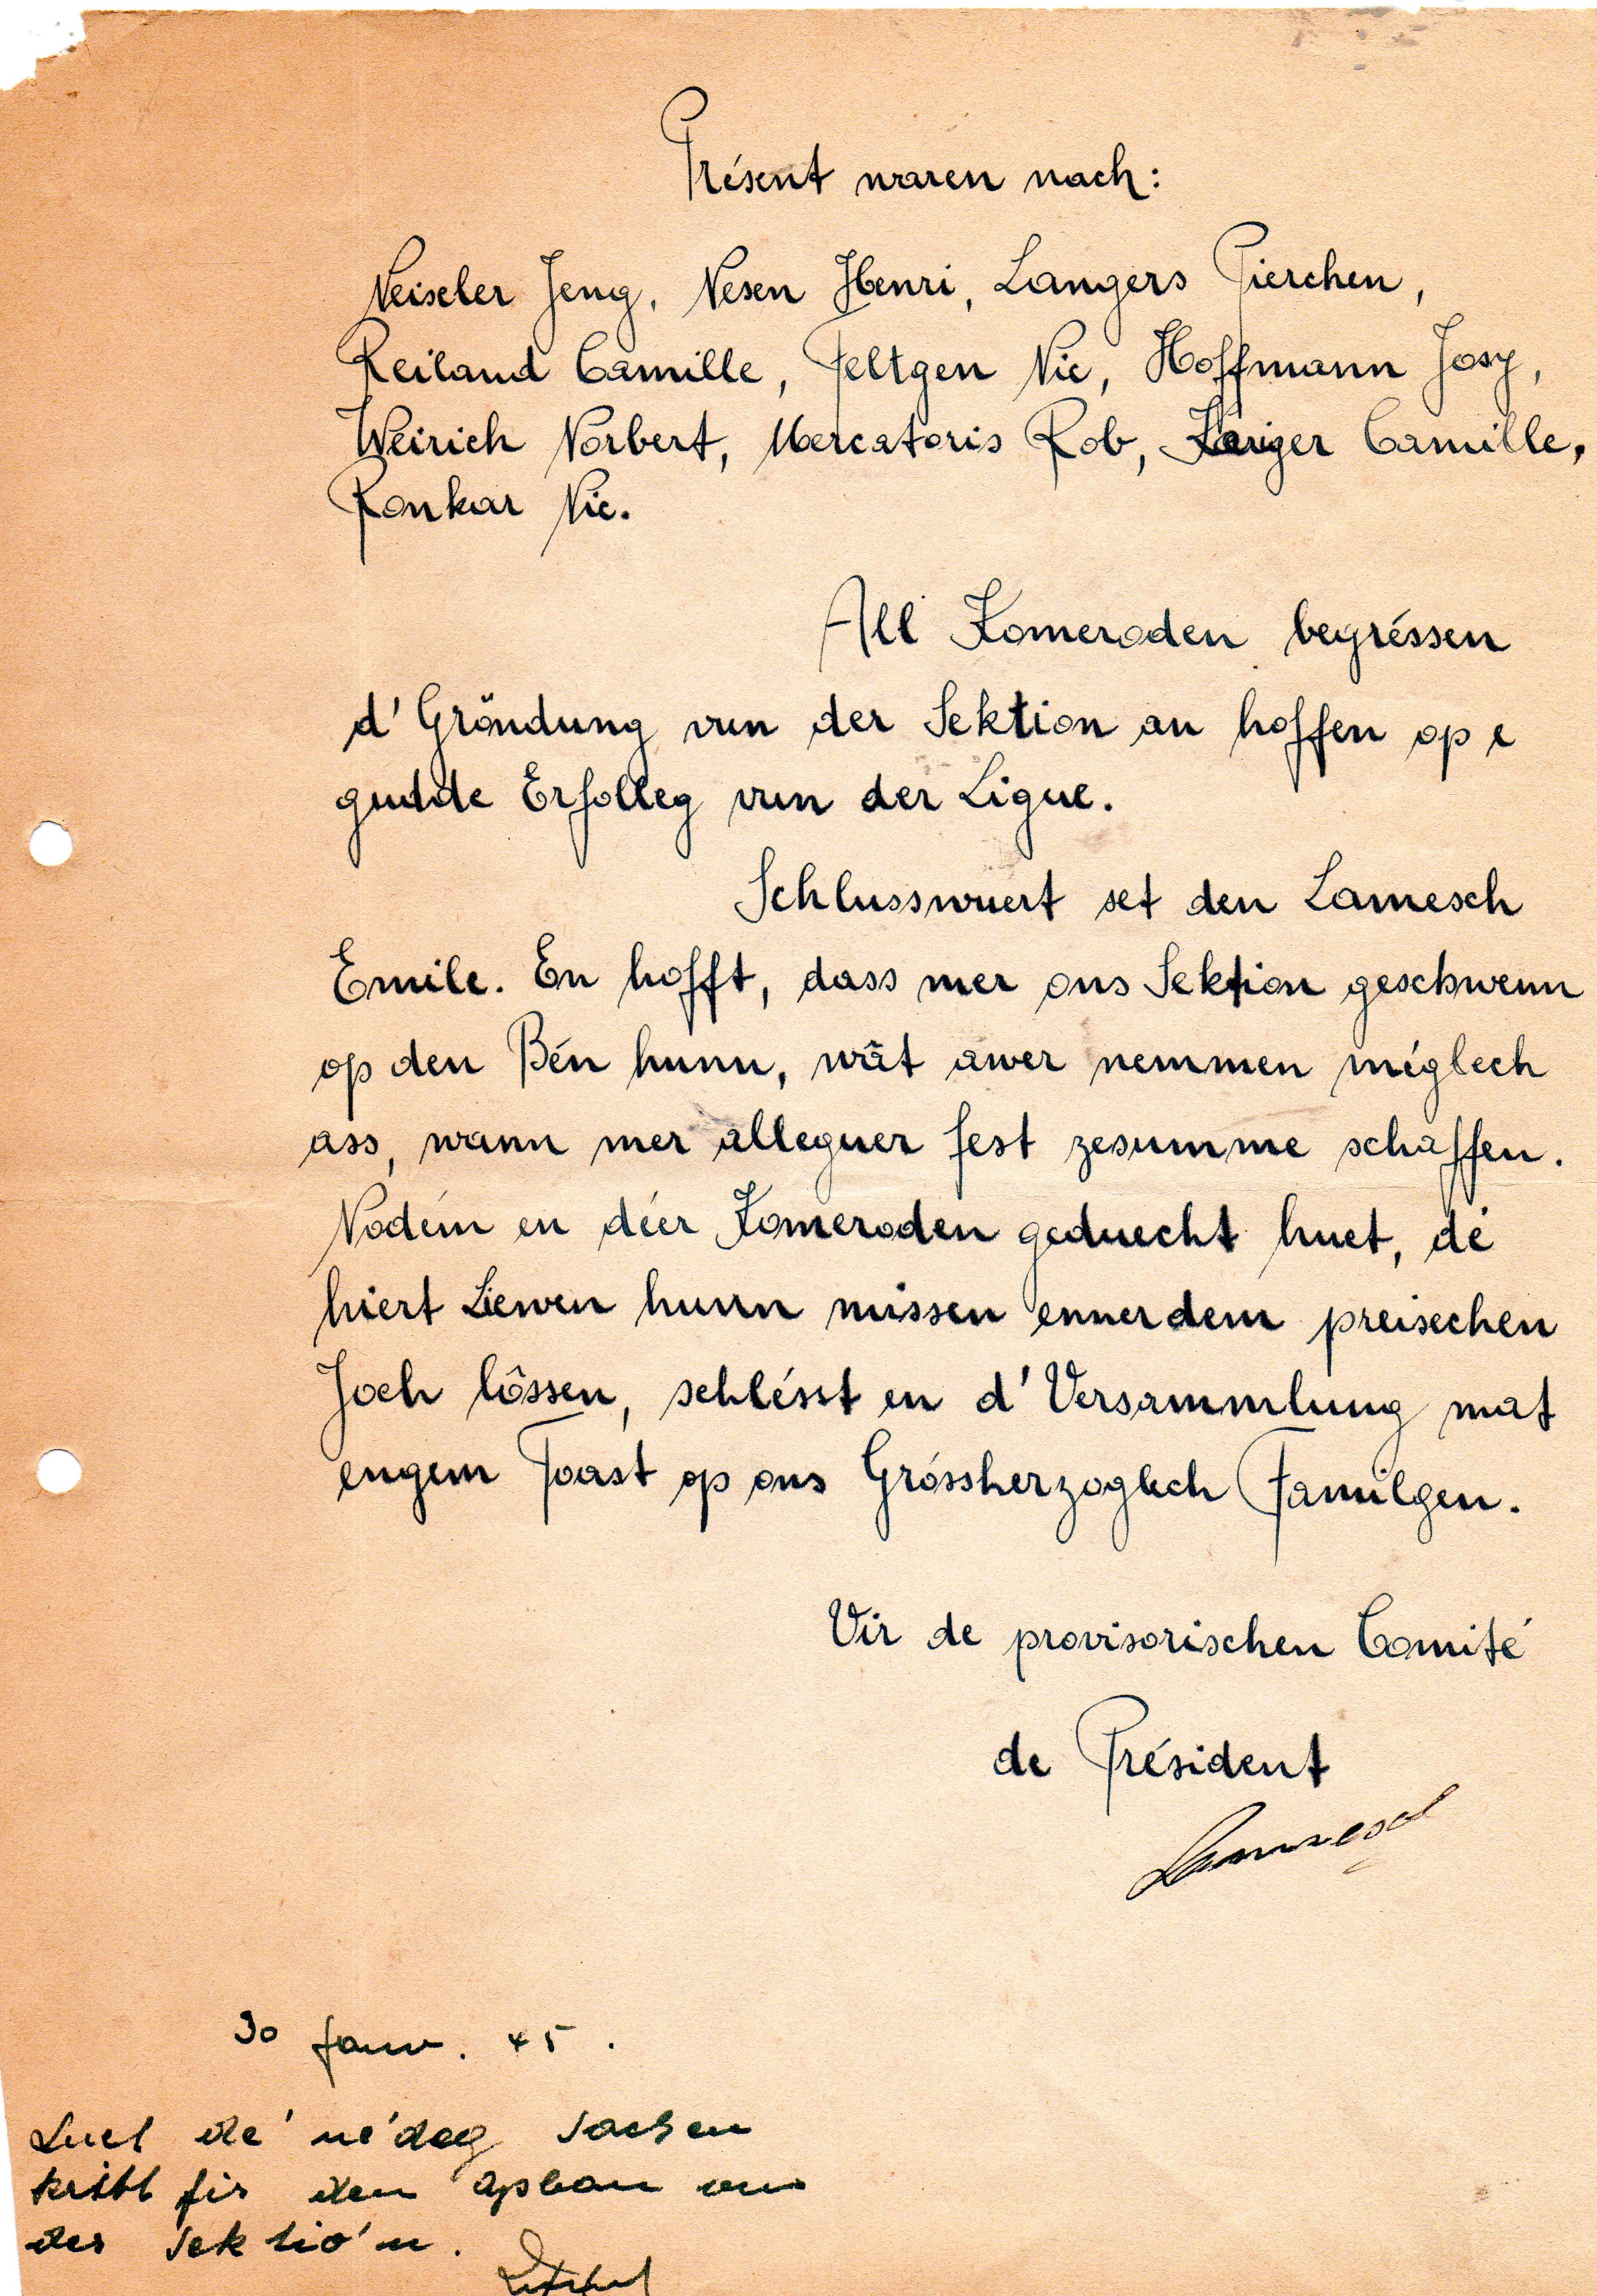 Présent waren nach:
Neiseler Jeng, Nesen Henri, Langers Pierchen,
Reiland Camille, Feltgen Nic, Hoffmann Josy,
Weirich Norbert, Mercatoris Rob, Kariger Camille,
Ronkar Nic.
All Komeroden begréssen
d'Gröndung vun der Sektion an hoffen op e
gudde Erfolleg vun der Ligue.
Schlusswuert set den Lamesch
Emile. En hofft, dass mer ons Sektion geschwenn
op den Bén hunn, wât awer nemmen méglech
ass, wann mer alleguer fest zesumme schaffen.
Nodém en déer Komeroden geduecht huet, dé
hiert Liewen hunn missen ennerdem preisechen
Joch lôssen, schlésst en d'Versammlung mat
engem Toast op ons Gróssherzoglech Familgen.
Vir de provisorischen Comité
de Président
Lamesch
30 Janv. 45.
dé nédeg Sachen
kritt fir den Opbau vun
der Sektió'n.